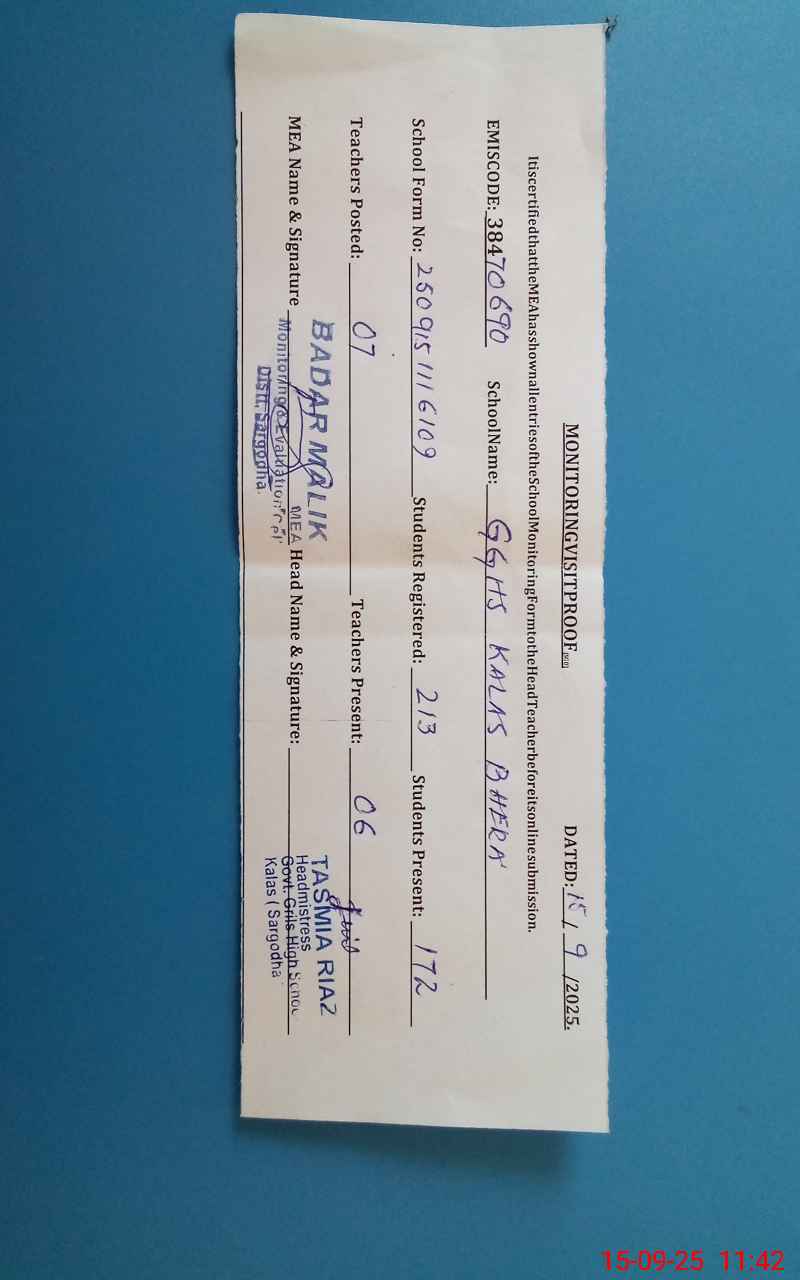 MONITORINGVISITPROOF DATED: 15 / 9 /2025.
ItiscertifiedthattheMEAhasshownallentriesoftheSchoolMonitoringFormtotheHeadTeacherbeforeitsonlinesubmission.
EMISCODE: 38470690 SchoolName: GGHS KALAS BHERA
School Form No: 2509151116109 Students Registered: 213 Students Present: 172
Teachers Posted: 07 Teachers Present: 06
MEA Name & Signature BADAR MALIK MEA Head Name & Signature: TASMIA RIAZ
Monitoring & Evaluation
Distt. Sargodha.
Headmistress
Govt. Grils High School
Kalas ( Sargodha
15-09-25 11:42